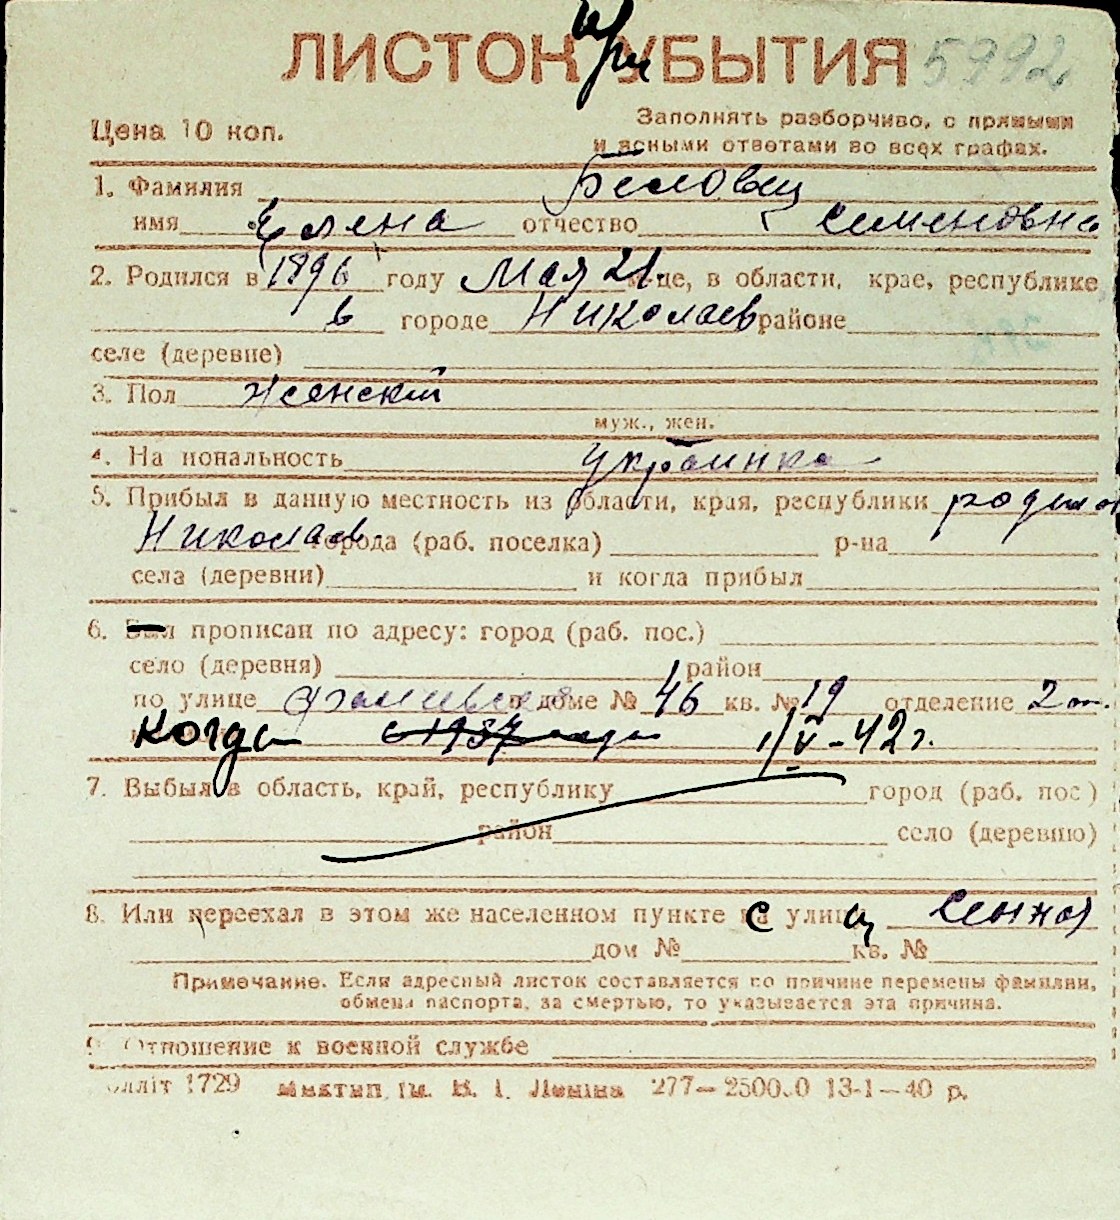 ЛИСТОК УБЫТИЯ при 5992
Цена 10 коп.
Заполнять разборчиво, с прямыми
и ясными ответами во всех графах.
1. Фамилия Беловец
имя Елена отчество Семеновна
2. Родился в 1896 году Мая 21. м-це, в области, крае, республике
в городе Николаев районе
селе (деревне)
3. Пол женский
муж., жен.
4. На иональность украинка
5. Прибыл в данную местность из области, края, республики
Николаев города (раб. поселка) р-на
села (деревни) и когда прибыл
6. Был прописан по адресу: город (раб. пос.)
село (деревня) район
по улице доме № 46 кв. № 19 отделение 2
когда с 1937 года 1/V-42 г.
7. Выбыл в область, край, республику город (раб. пос)
район село (деревню)
8. Или переехал в этом же населенном пункте с улиц Сенной
дом № кв. №
Примечание. Если адресный листок составляется по причине перемены фамилии,
обмена паспорта, за смертью, то указывается эта причина.
9. Отношение к военной службе
олліт 1729 Миктип ім. В. І. Леніна 277—25000 13-1—40 р.